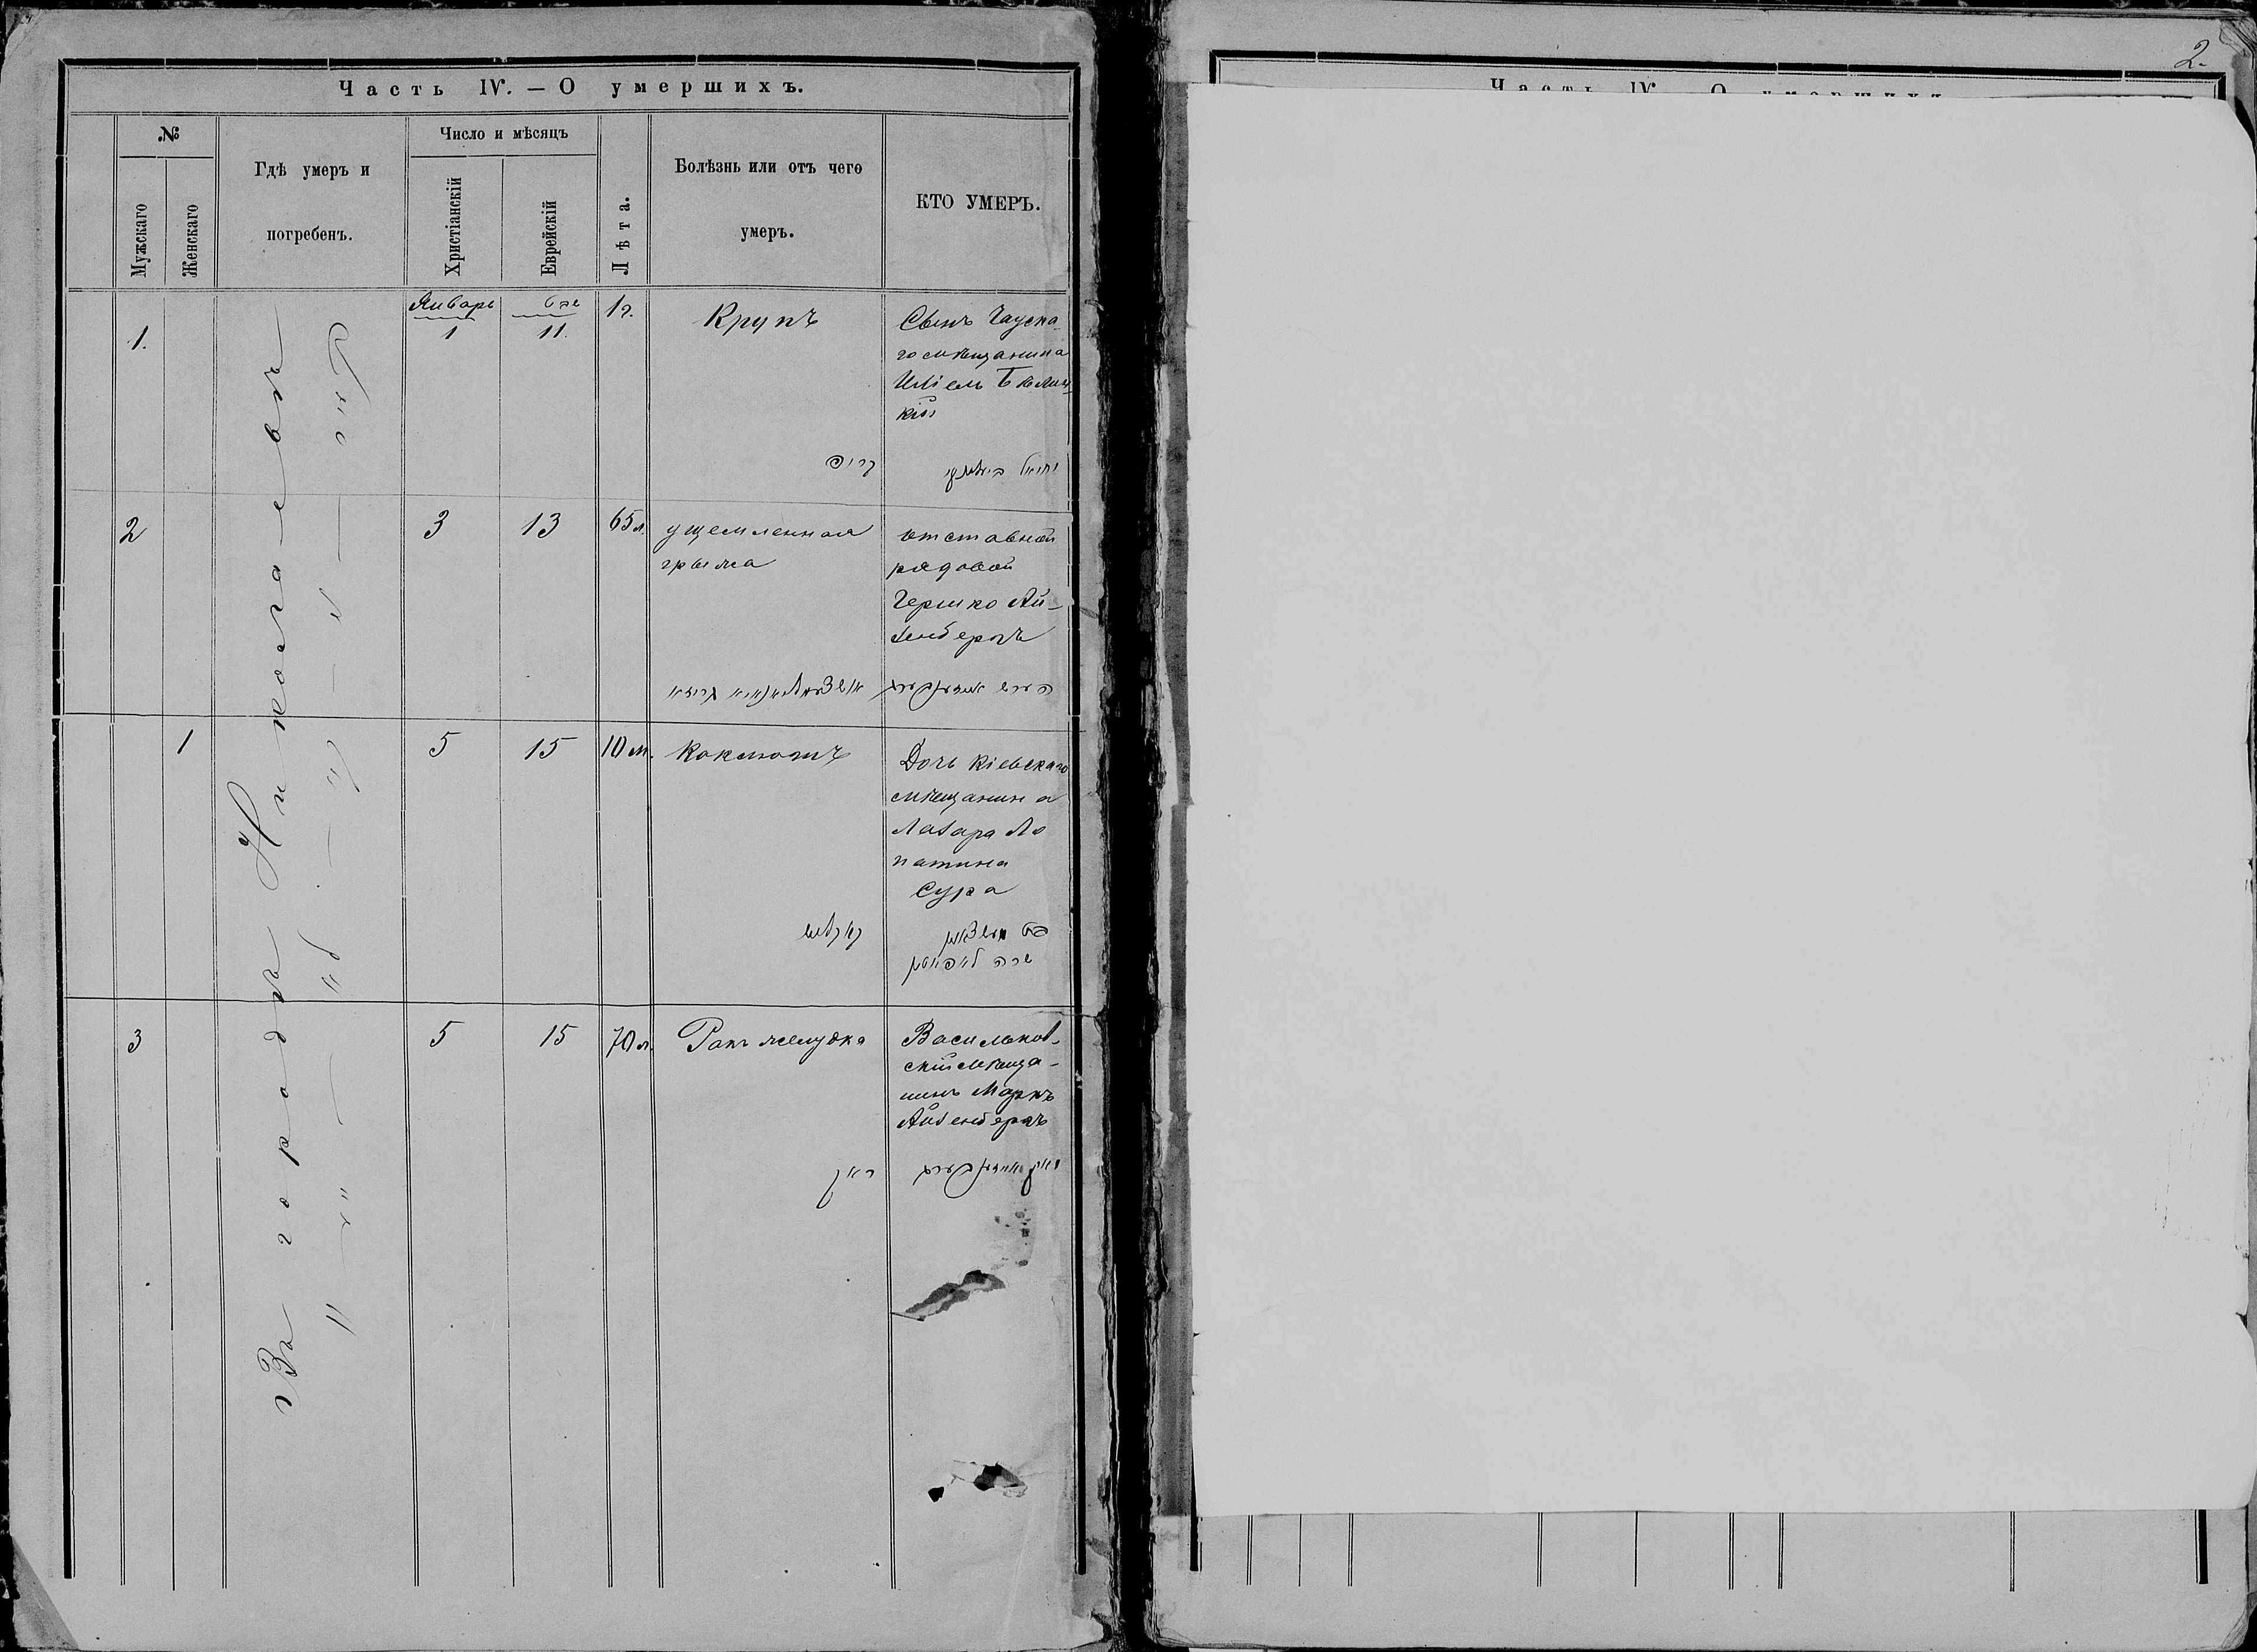 Часть IV. — О умершихъ.
№
Мужскаго
Женскаго
Гдѣ умеръ и
погребенъ.
Число и мѣсяцъ
Христіанскій
Еврейскій
Лѣта.
Болѣзнь или отъ чего
умеръ.
КТО УМЕРЪ.
Въ городѣ Николаевѣ
1.
Январь
1
טבת
11.
1 г.
Крупъ
Сынъ Чауска-
го мѣщанина
קרופ
2
3
13
65 л.
ущемленная
грыжа
отставной
рядовой
Гершко Ай-
зенбергъ
1
5
15
10 м.
Коклюшъ
Дочь Кіевскаго
мѣщанина
Лазаря Ло
патина
Сура
קאקלוש
שרה לאפאטין
3
5
15
70 л.
Ракъ желудка
Васильков-
скій мѣща-
нинъ Маркъ
Айзенбергъ
ראק
2.
Часть IV. — О умершихъ.